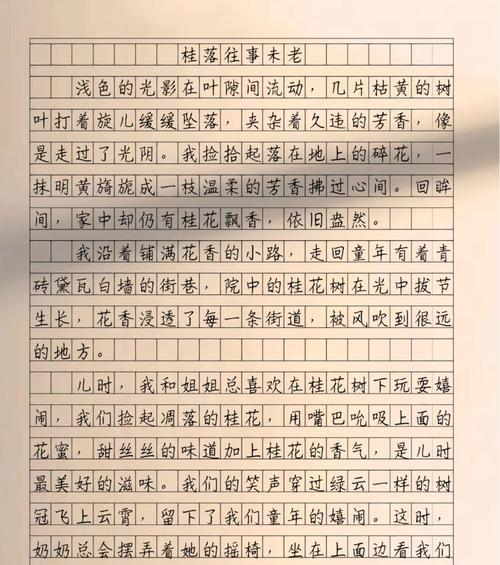 桂落往事未老
浅色的光影在叶隙间流动，几片枯黄的树
叶打着旋儿缓缓坠落，夹杂着久违的芳香，像
是走过了光阴。我捡拾起落在地上的碎花，一
抹明黄旖旎成一枝温柔的芳香拂过心间。回眸
间，家中却仍有桂花飘香，依旧盎然。
我沿着铺满花香的小路，走回童年有着青
砖黛瓦白墙的街巷，院中的桂花树在光中拔节
生长，花香浸透了每一条街道，被风吹到很远
的地方。
儿时，我和姐姐总喜欢在桂花树下玩耍嬉
闹，我们捡起凋落的桂花，用嘴巴吮吸上面的
花蜜，甜丝丝的味道加上桂花的香气，是儿时
最美好的滋味。我们的笑声穿过绿云一样的树
冠飞上云霄，留下了我们童年的嬉闹。这时，
奶奶总会摆弄着她的摇椅，坐在上面看我们